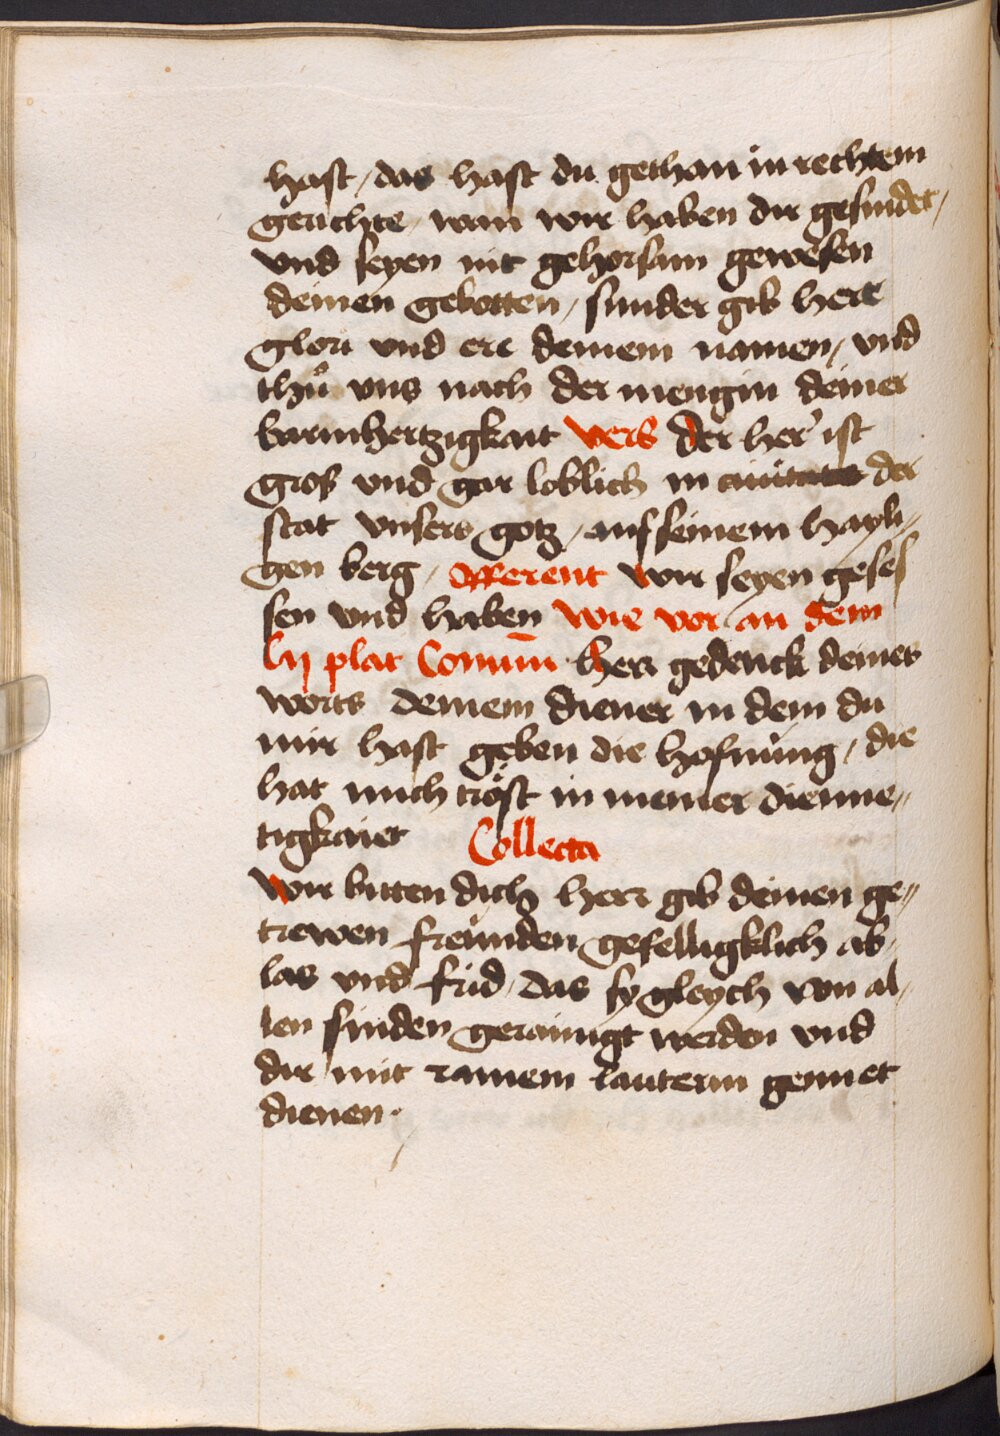 hast / das hast du gethan in rechtem
gerichte / wan wir haben dir gesindet /
vnd seyen nit gehorsam gewesen
deinen gebotten / sunder gib here
glori vnd ere deinem namen / vnd
thů vns nach der mengin deiner
barmhertzigkait vers Der her' ist
gros vnd gar loblich in der
stat vnsers gotz / auf seinem hayli„
gen berg / offerent Wir seyen geses
sen vnd haben wie vor an dem
lij plat Comūn Herr gedenck deines
worts deinem diener in dem du
mir hast geben die hofnung / die
hat mich tröst in meiner dieme„
tigkaiet Collecta
Wir bitten dich herr gib deinen ge„
trewen freünden gefelligklich ab„
las vnd frid / das sy gleych von al„
len sinden gerainigt werden vnd
dir mit rainem lauterm gemiet
dienen ·